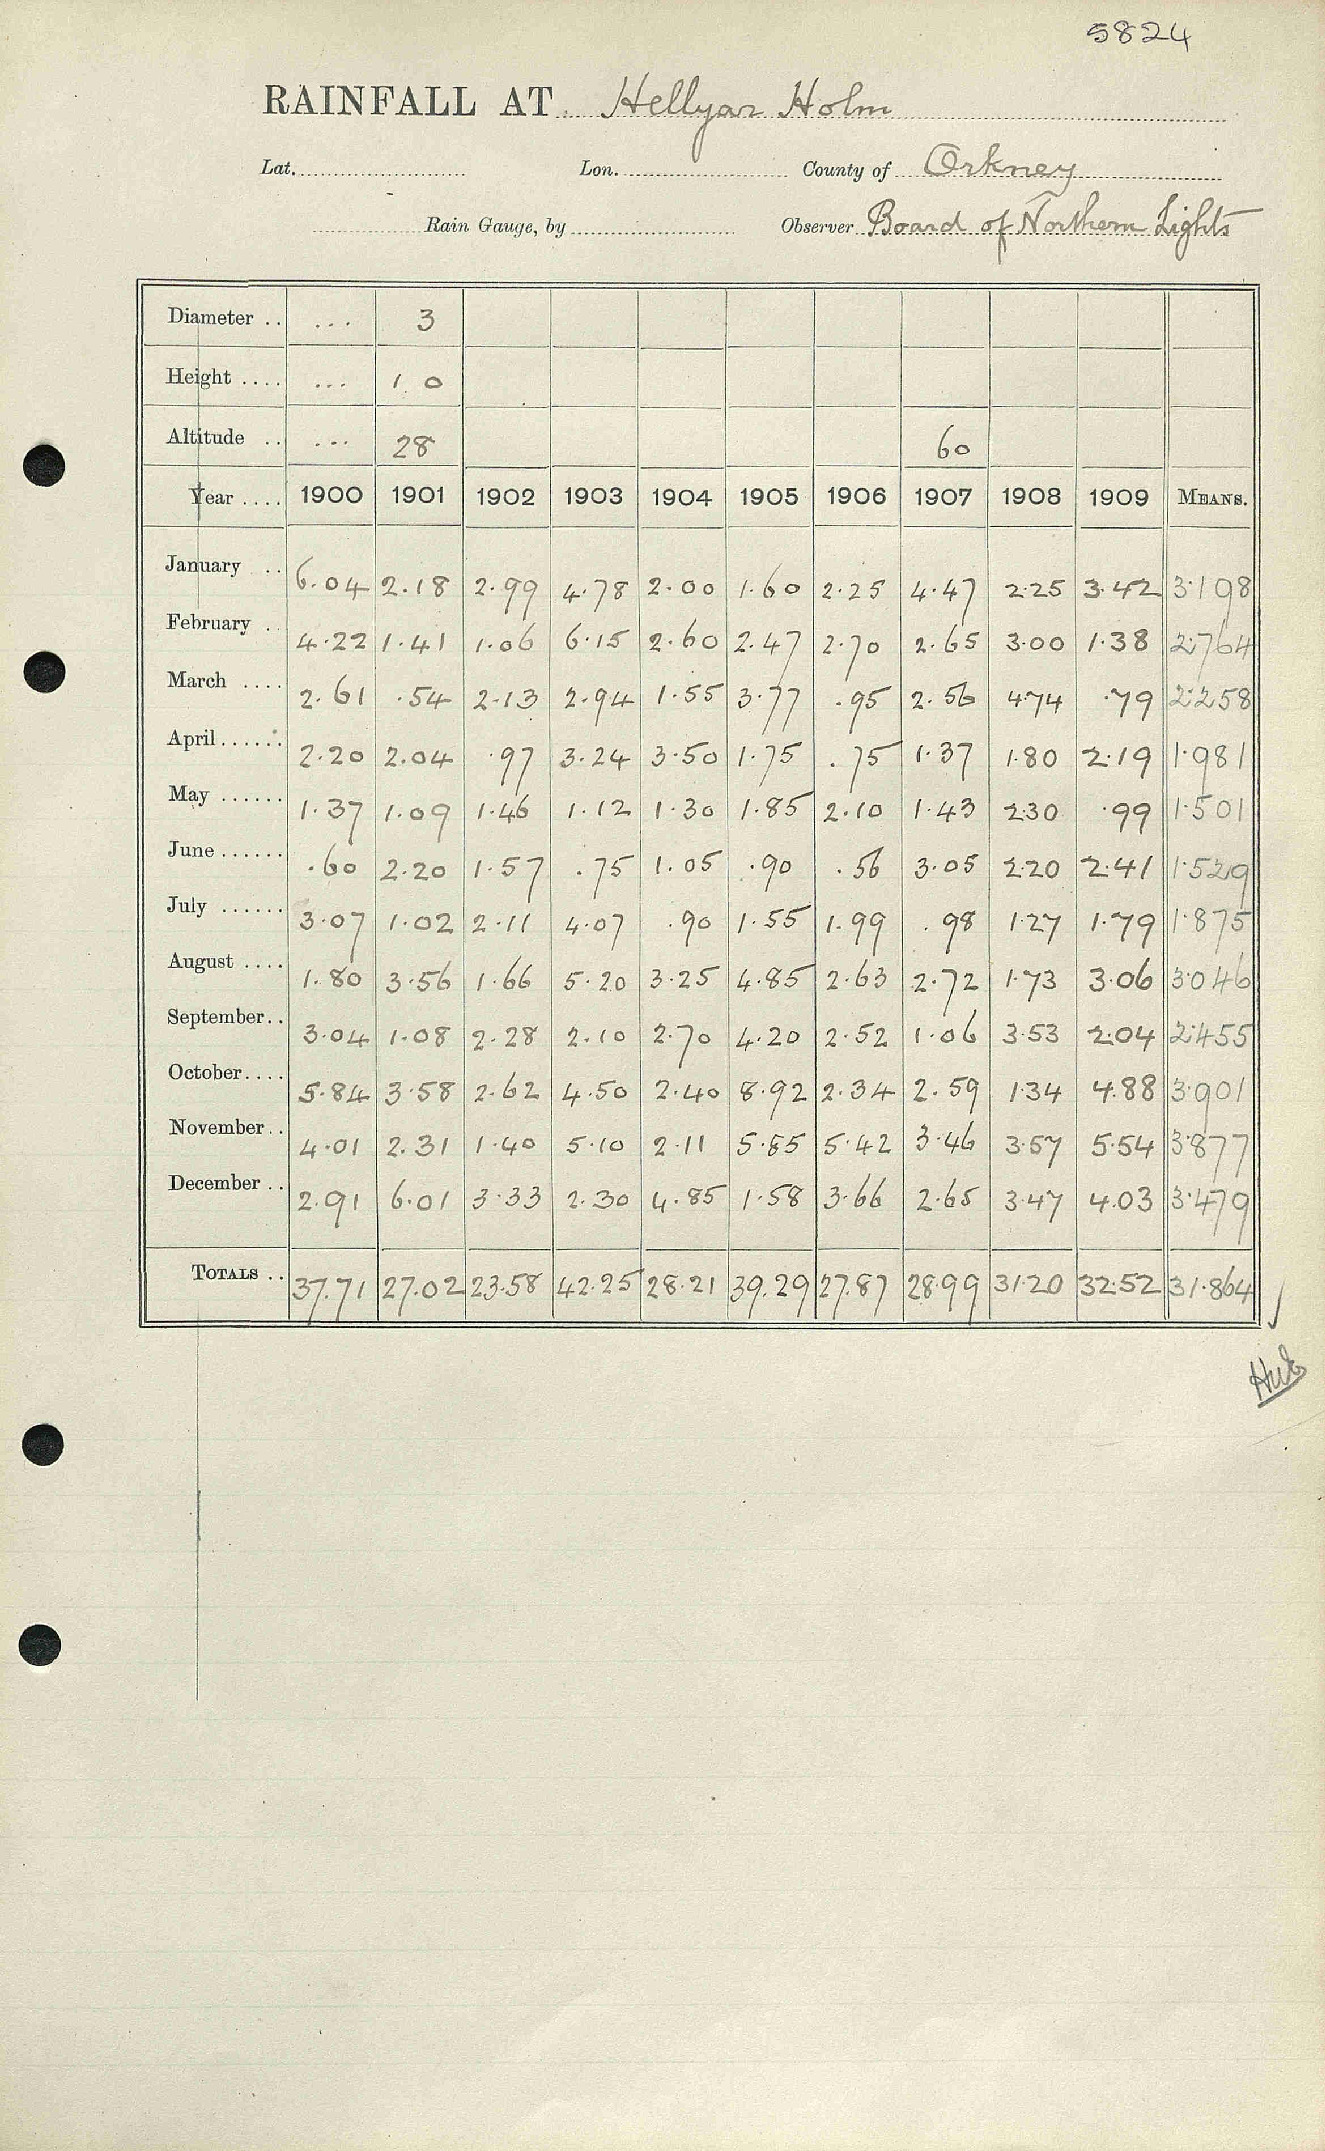 5824
RAINFALL AT Hellyar Holm
Lat. Lon. County of Orkney
Rain Gauge, by Observer Board of Northern Lights
Diameter .. ... 3
Height .... ... 1. 0
Altitude .. ... 28 60
Year .... 1900 1901 1902 1903 1904 1905 1906 1907 1908 1909 MEANS.
January .. 6.04 2.18 2.99 4.78 2.00 1.60 2.25 4.47 2.25 3.42 3.198
February .. 4.22 1.41 1.06 6.15 2.60 2.47 2.70 2.65 3.00 1.38 2.764
March .... 2.61 .54 2.13 2.94 1.55 3.77 .95 2.56 4.74 .79 2.258
April...... 2.20 2.04 .97 3.24 3.50 1.75 .75 1.37 1.80 2.19 1.981
May ...... 1.37 1.09 1.46 1.12 1.30 1.85 2.10 1.43 2.30 .99 1.501
June ...... .60 2.20 1.57 .75 1.05 .90 .56 3.05 2.20 2.41 1.529
July ...... 3.07 1.02 2.11 4.07 .90 1.55 1.99 .98 1.27 1.79 1.875
August .... 1.80 3.56 1.66 5.20 3.25 4.85 2.63 2.72 1.73 3.06 3.046
September.. 3.04 1.08 2.28 2.10 2.70 4.20 2.52 1.06 3.53 2.04 2.455
October.... 5.84 3.58 2.62 4.50 2.40 8.92 2.34 2.59 1.34 4.88 3.901
November.. 4.01 2.31 1.40 5.10 2.11 5.85 5.42 3.46 3.57 5.54 3.877
December .. 2.91 6.01 3.33 2.30 4.85 1.58 3.66 2.65 3.47 4.03 3.479
TOTALS .. 37.71 27.02 23.58 42.25 28.21 39.29 27.87 28.99 31.20 32.52 31.864